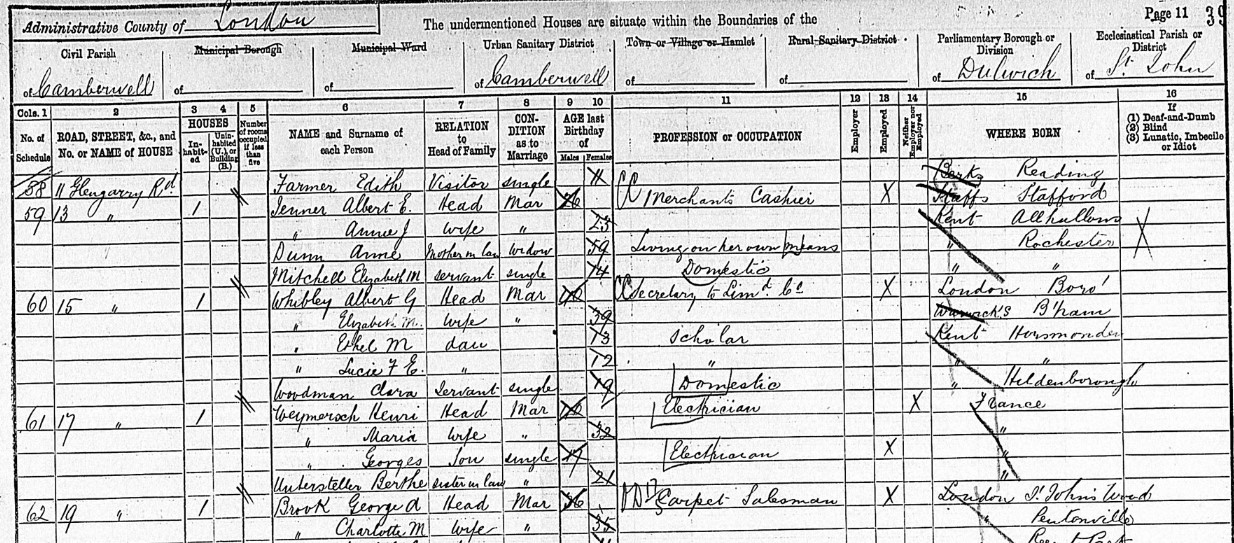 Administrative County of London The undermentioned Houses are situate within the Boundaries of the Page 11 39
Civil Parish Municipal Borough Municipal Ward Urban Sanitary District Town or Village or Hamlet Rural Sanitary District Parliamentary Borough or Division Ecclesiastical Parish or District
of Camberwell of of of Camberwell of of of Dulwich of St. John
Cols. 1 2 3 4 5 6 7 8 9 10 11 12 13 14 15 16
No. of Schedule ROAD, STREET, &c., and No. or NAME of HOUSE HOUSES In-habit-ed Unin-habited (U.) or Building (B.) Number of rooms occupied if less than five NAME and Surname of each Person RELATION to Head of Family CON-DITION as to Marriage AGE last Birthday of Males Females PROFESSION or OCCUPATION Employer Employed Neither Employer nor Employed WHERE BORN If (1) Deaf-and-Dumb (2) Blind (3) Lunatic, Imbecile or Idiot
58 11 Glengarry Rd. Farmer Edith Visitor single 11 Berks Reading
59 13 " 1 Jenner Albert E. Head Mar 26 Merchants Cashier X Staffs Stafford
" Annie J wife " 23 Kent Allhallows
Dunn Anne Mother in law widow 59 Living on her own means " Rochester
Mitchell Elizabeth M servant single 14 Domestic " "
60 15 " 1 Whibley Albert G Head Mar Secretary to Limd. Co X London Boro'
" Elizabeth M. wife " 39 Warwicks B'ham
" Ethel M dau 13 Scholar Kent
" Lucie F E. " 12 " " "
Woodman Clara Servant single 19 Domestic " Hildenborough
61 17 " 1 Henri Head Mar Electrician X France
" Maria wife " 32 "
" Georges Son single 17 Electrician X "
Untersteller Berthe sister in law " 21 "
62 19 " 1 Brook George A Head Mar 36 Carpet Salesman X London St. Johns Wood
" Charlotte M wife " 34 " Pentonville